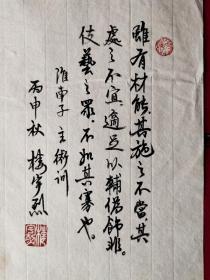 雖有材能其施之不當其
處之不宜適足以輔偽飾非。
伎藝之眾不如其寡也。
淮南子 主術訓
丙申秋 楼宇烈